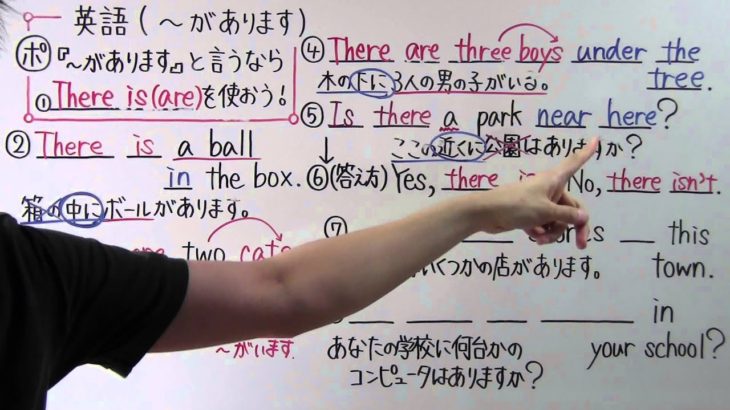 英語(～があります)
ポ『～があります』と言うなら
①There is(are)を使おう!
②There is a ball
in the box.
箱の中にボールがあります。
two cats
～がいます.
④There are three boys under the
tree.
木の下に3人の男の子がいる。
⑤Is there a park near here?
ここの近くに公園はありますか?
⑥(答え方)Yes, there No, there isn't.
⑦ this
いくつかの店があります。 town.
in
あなたの学校に何台かの your school?
コンピュータはありますか?